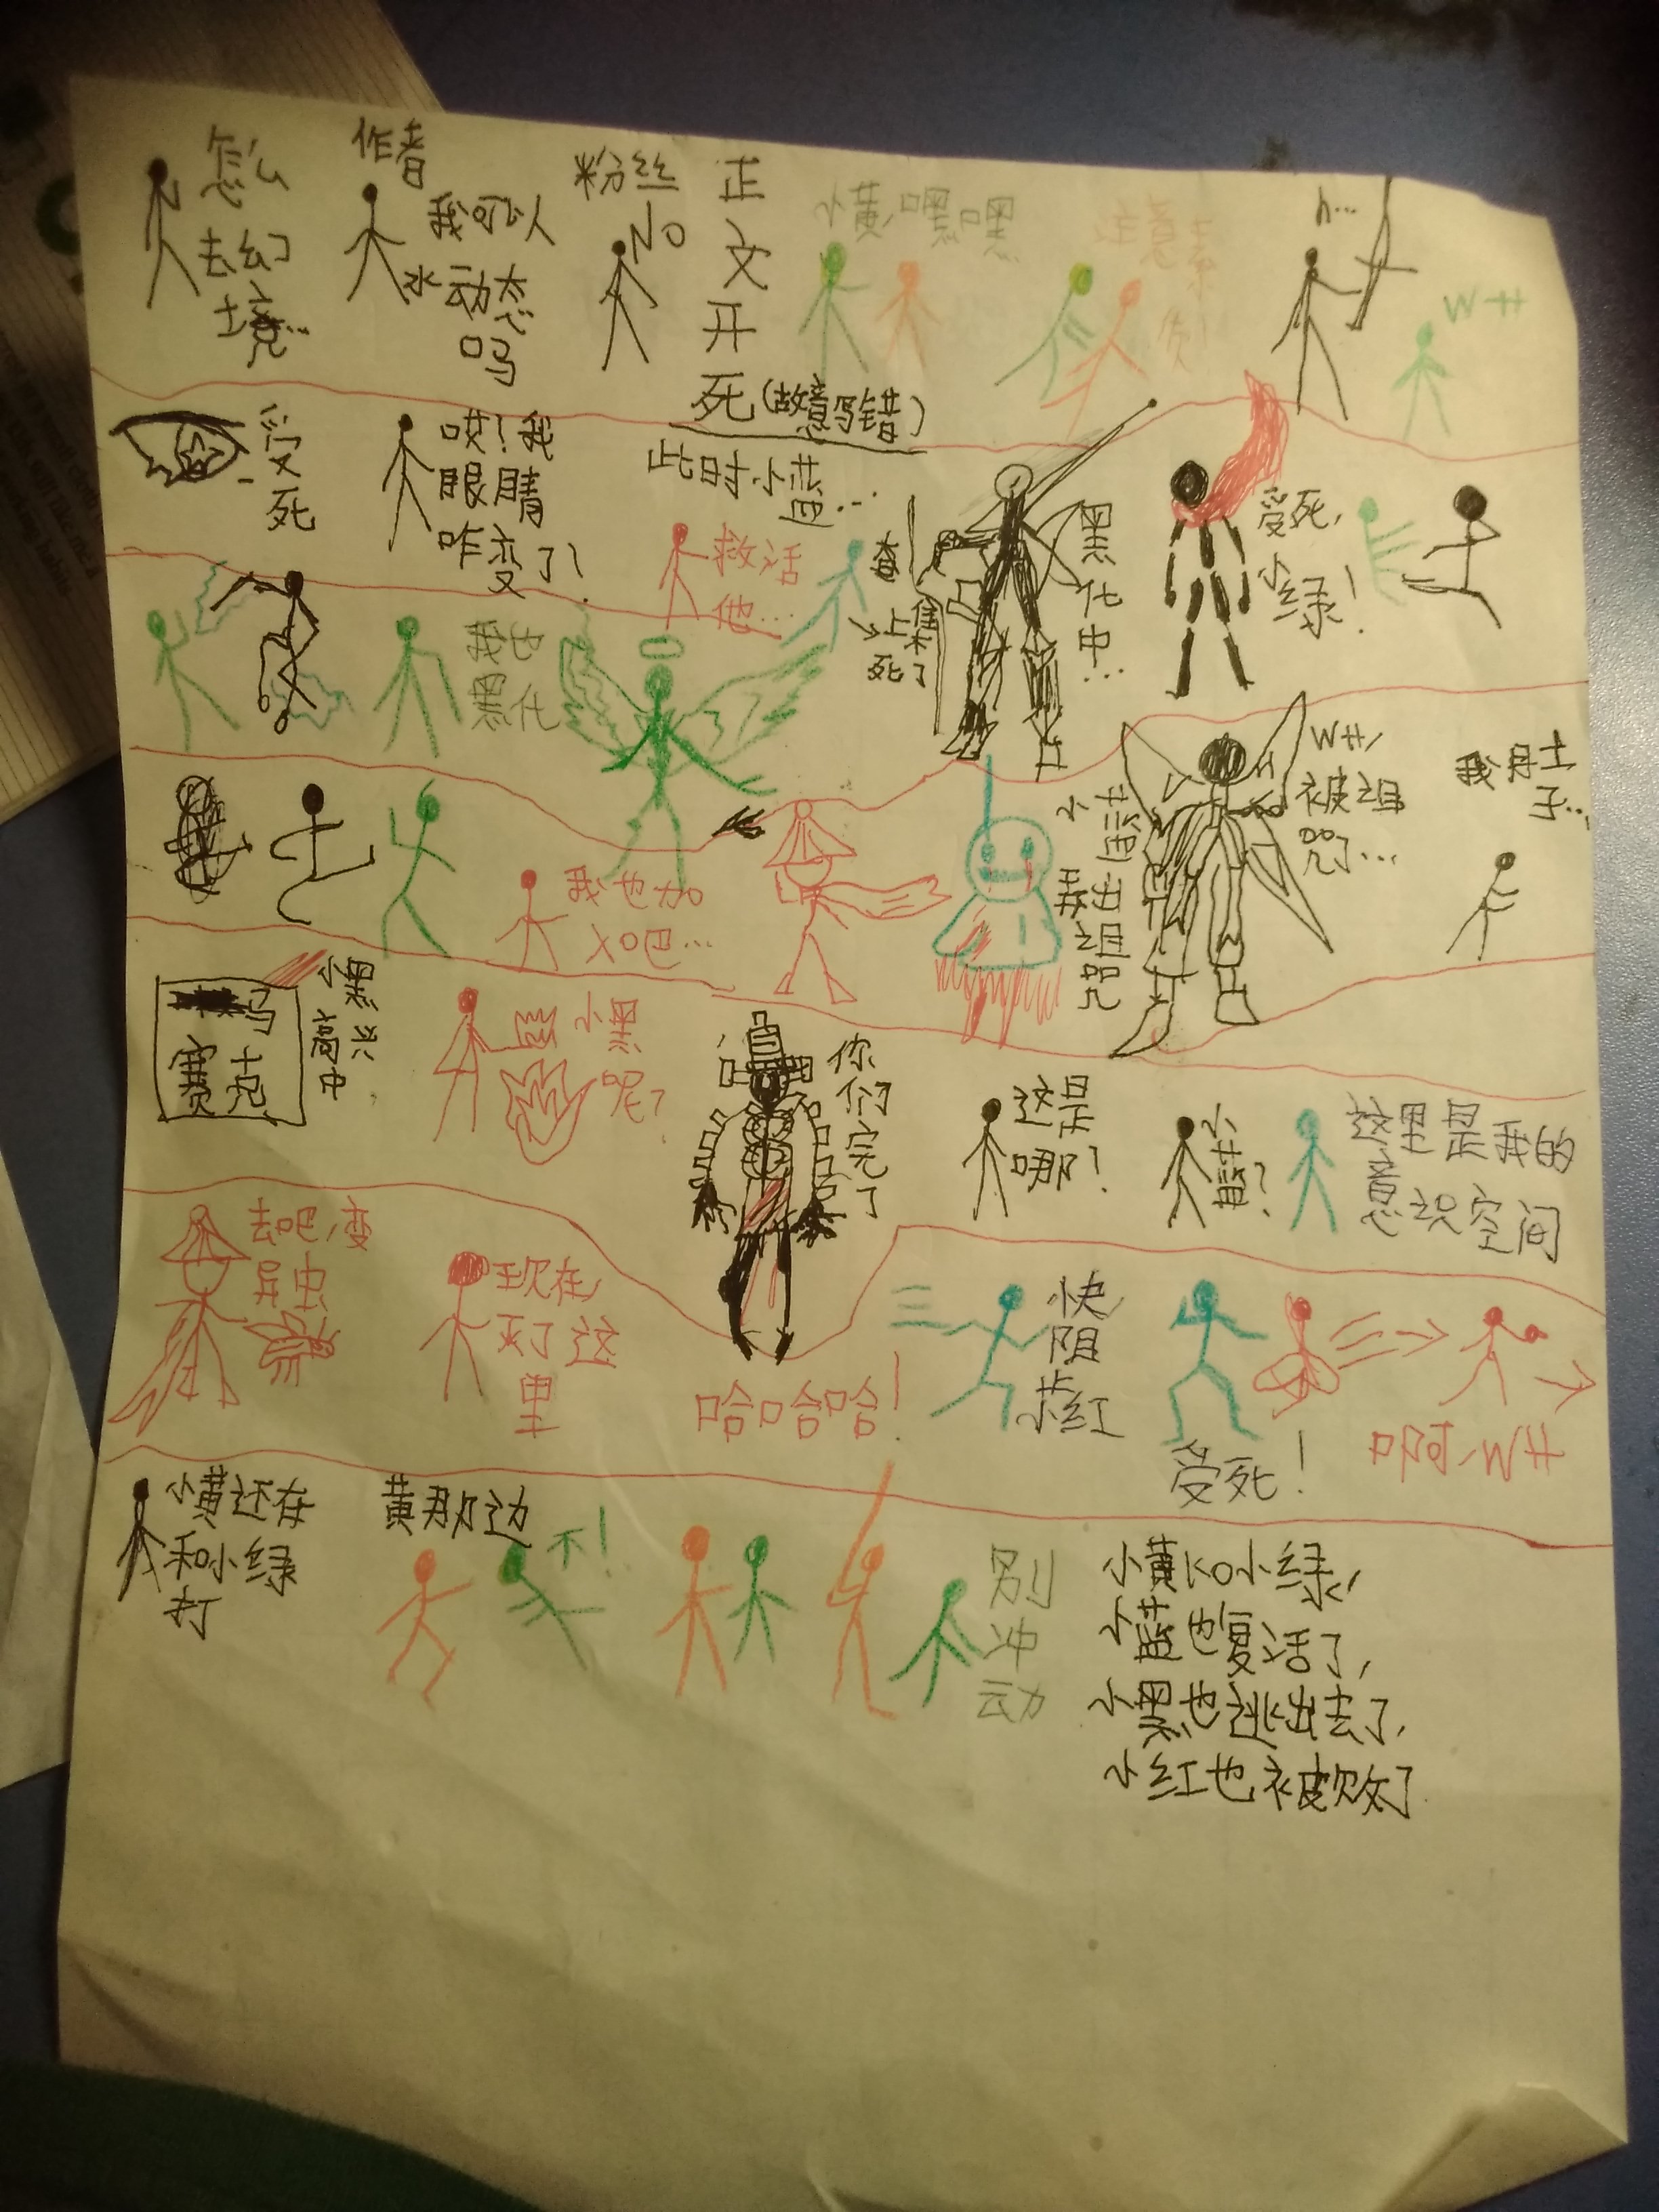 怎么
去幻
境…
作者
我可以
水动态
吗
粉丝
NO
正
文
开
死(故意写错)
小黄,嘿嘿
h…
W艹
受
死
哎!我
眼睛
咋变了!
此时小蓝…
救活
他…
黑
化
中
…
受死,
小
绿!
我也
黑化
我也加
入吧…
小蓝
弄出诅咒
W艹,
被诅
咒了…
我肚
子…
马
赛克
小黑
呢?
你
们
完
了
这是
哪!
小
蓝?
这里是我的
意识空间
去吧,变
异虫
现在,
到这
里
哈哈哈!
快,
阻
止
小红
受死!
啊,W艹
小黄还在
和小绿
打
黄那边
不!
别
冲
动
小黄KO小绿,
小蓝也复活了,
小黑也逃出去了,
小红也被败了